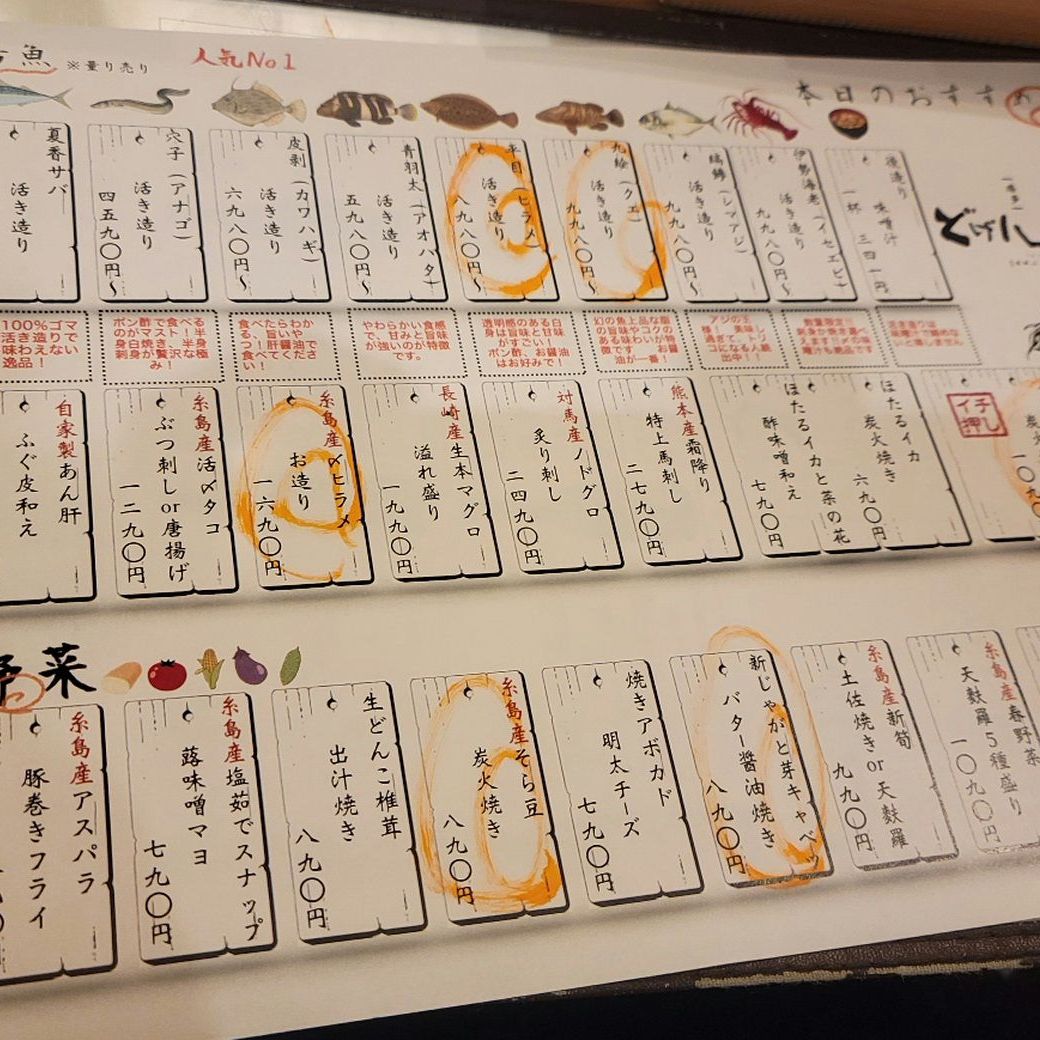 魚
※量り売り
人気No1
本日のおすすめ
一博多一
どげん
後造り
味噌汁
一杯 三四一円
伊勢海老(イセエビ)
活き造り
九九八〇円〜
縞鯵(シマアジ)
活き造り
九九八〇円〜
九絵(クエ)
活き造り
九九八〇円〜
平目(ヒラメ)
活き造り
八九八〇円〜
青羽太(アオハタ)
活き造り
五九八〇円〜
皮剥(カワハギ)
活き造り
六九八〇円〜
穴子(アナゴ)
活き造り
四五九〇円〜
夏香サバ
活き造り
100%ゴマ
活き造え!
味わえない
逸品!
ポン酢で食べる
のがマスト!半
身白焼き、半身
刺身が贅沢な極
み!
食べたらわか
る、旨いや
っ!肝醤油で
食べてくださ
い!
やわらかい食感
で、甘みと旨味
が強いのが特徴
です。
透明感のある白
身は旨味と甘味
がすごい!
ポン酢、お醤油
はお好みで!
幻の魚上品な脂
の旨味やコクの
ある味わいが特
徴です お醤
油が一番!
アジの王
様! 美味し
過ぎて、トリ
コになる人続
出中!
イチ
押し
炭火
ほたるイカ
炭火焼き
六九〇円
ほたるイカと菜の花
酢味噌和え
七九〇円
熊本産霜降り
特上馬刺し
二七九〇円
対馬産ノドグロ
炙り刺し
二四九〇円
長崎産生本マグロ
溢れ盛り
一九九〇円
糸島産〆ヒラメ
お造り
一六九〇円
糸島産活〆タコ
ぶつ刺しor唐揚げ
一二九〇円
自家製あん肝
ふぐ皮和え
野菜
糸島産春野菜
天麩羅5種盛り
一〇九〇円
糸島産新筍
土佐焼きor天麩羅
九九〇円
新じゃがと芽キャベツ
バター醤油焼き
八九〇円
焼きアボカド
明太チーズ
七九〇円
糸島産そら豆
炭火焼き
八九〇円
生どんこ椎茸
出汁焼き
八九〇円
糸島産塩茹でスナップ
蕗味噌マヨ
七九〇円
糸島産アスパラ
豚巻きフライ